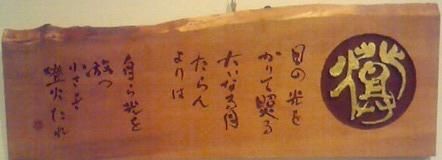 日の光を
かりて照る
大いなる月
たらん
よりは
自ら光を
放つ
小さき
燈火たれ